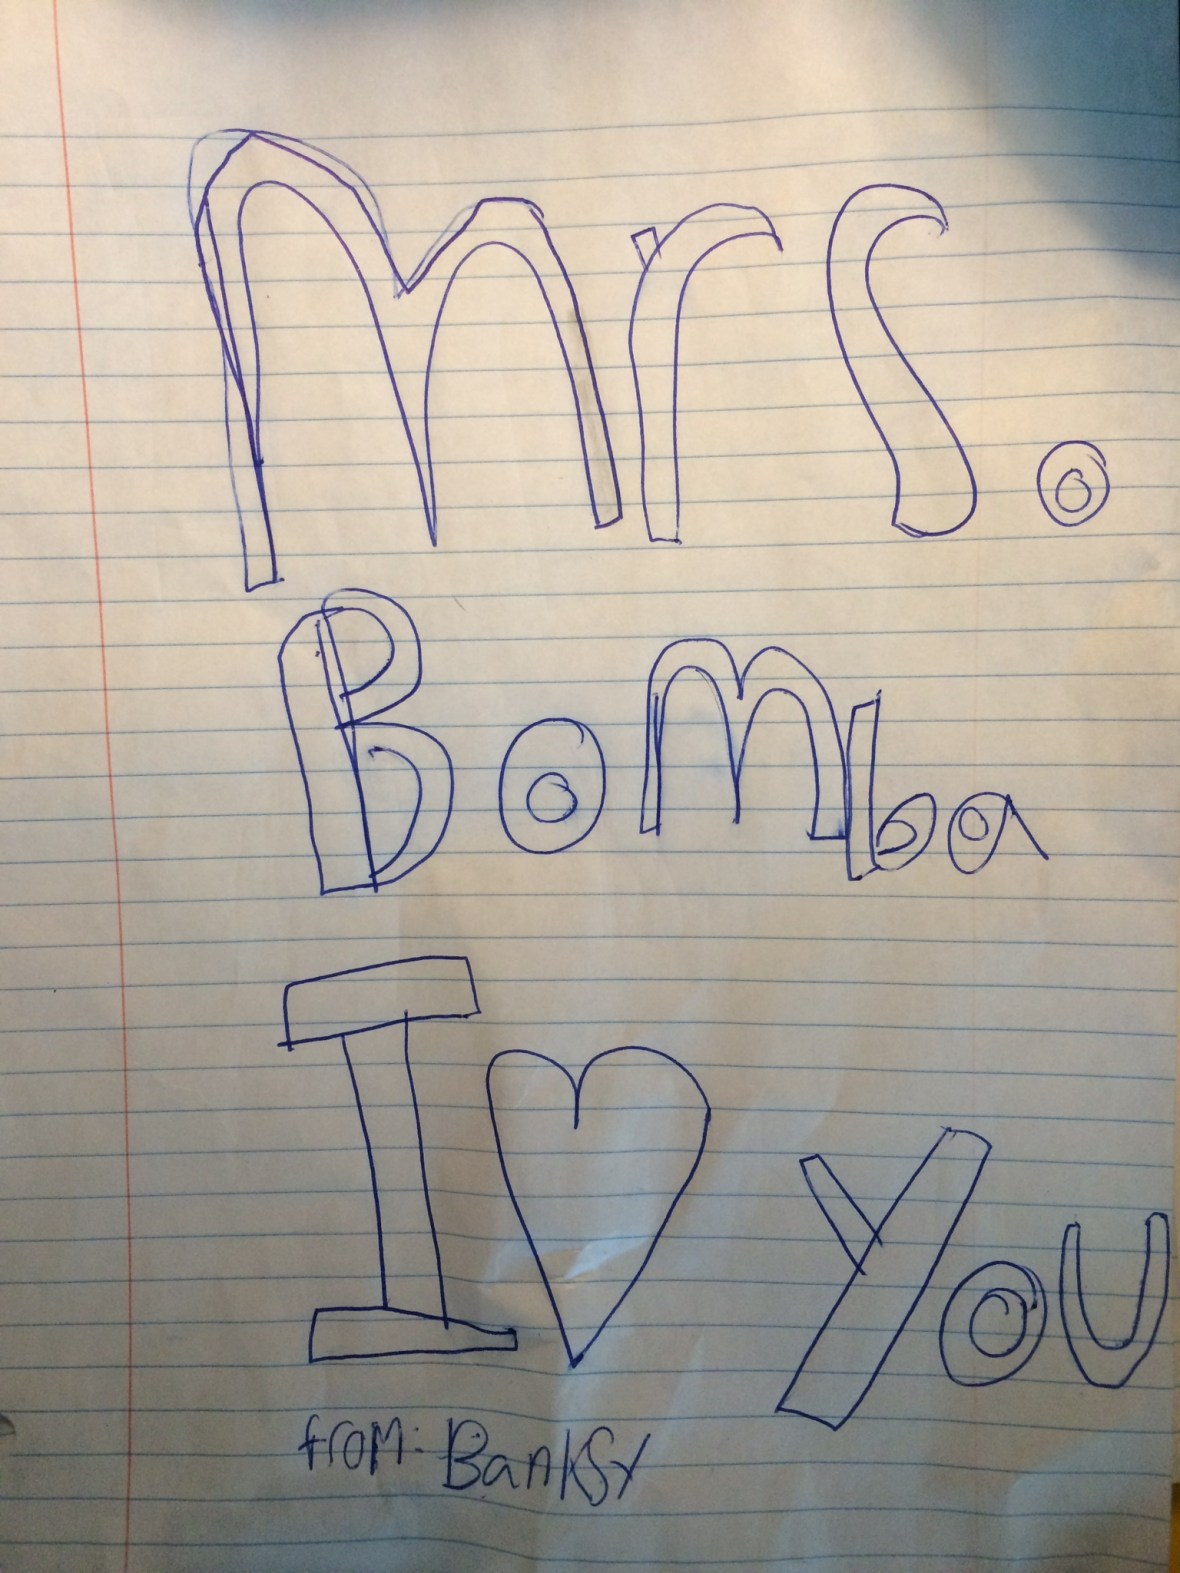 Mrs.
Bomba
I ♡ You
from: Banksy